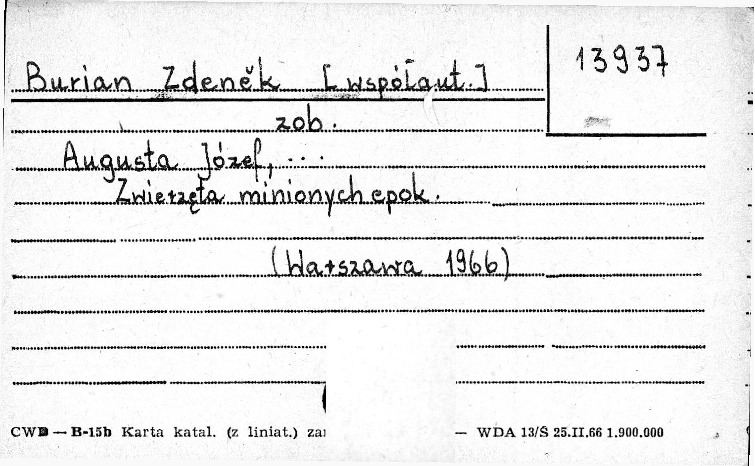 13937
Burian Zdeněk [współaut.]
zob.
Augusta Józef, ...
Zwierzęta minionych epok.
(Warszawa 1966)
CWD — B-15b Karta katal. (z liniat.) — WDA 13/Ś 25.II.66 1.900.000